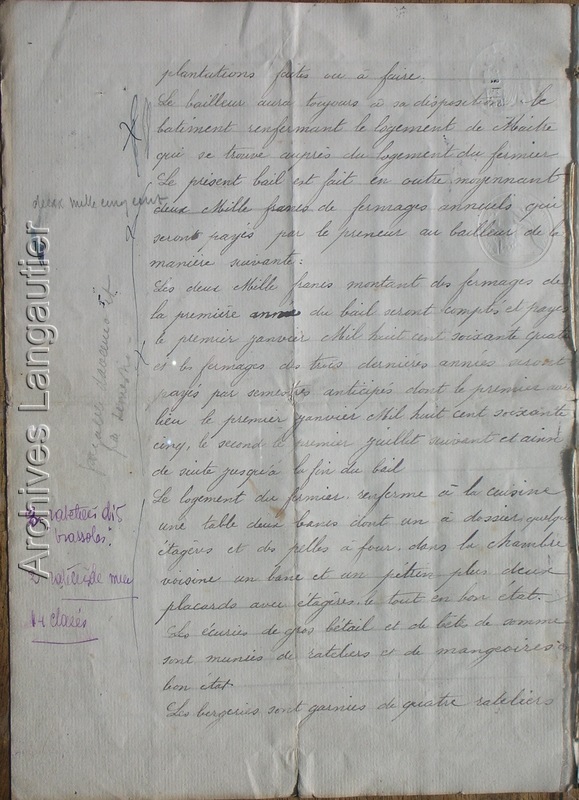 plantations faites ou à faire.
Le bailleur aura toujours à sa disposition le
batiment renfermant le logement de Maitre
qui se trouve auprès du logement du fermier
Le présent bail est fait en outre moyennant
deux Mille francs de fermages annuels qui
seront payés par le preneur au bailleur de la
manière suivante:
Les deux Mille francs montant des fermages de
la première année du bail seront comptés et payés
le premier janvier Mil huit cent soixante quatre
et les fermages des trois dernières années seront
payés par semestres anticipés dont le premier au
lieu le premier janvier Mil huit cent soixante
cinq, le second le premier juillet suivant et ainsi
de suite jusqu'à la fin du bail
Le logement du fermier renferme à la cuisine
une table deux bancs dont un à dossier, quelques
étagères et des pelles à four, dans la chambre
voisine un banc et un pétrin, plus deux
placards avec étagères, le tout en bon état.
Les écuries de gros bétail et de bêtes de somme
sont munies de rateliers et de mangeoires en
bon état.
Les bergeries sont garnies de quatre rateliers
deux mille cinq cent
payables
par semestre
rateliers
clases
Archives Langautier